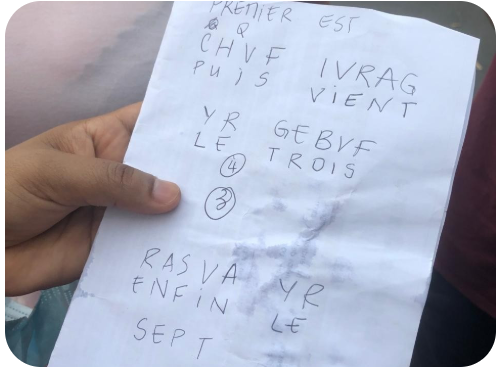 PREMIER EST
Q Q
CHVF IVRAG
PUIS VIENT
YR GEBVF
LE TROIS
4
3
RASVA YR
ENFIN LE
SEPT